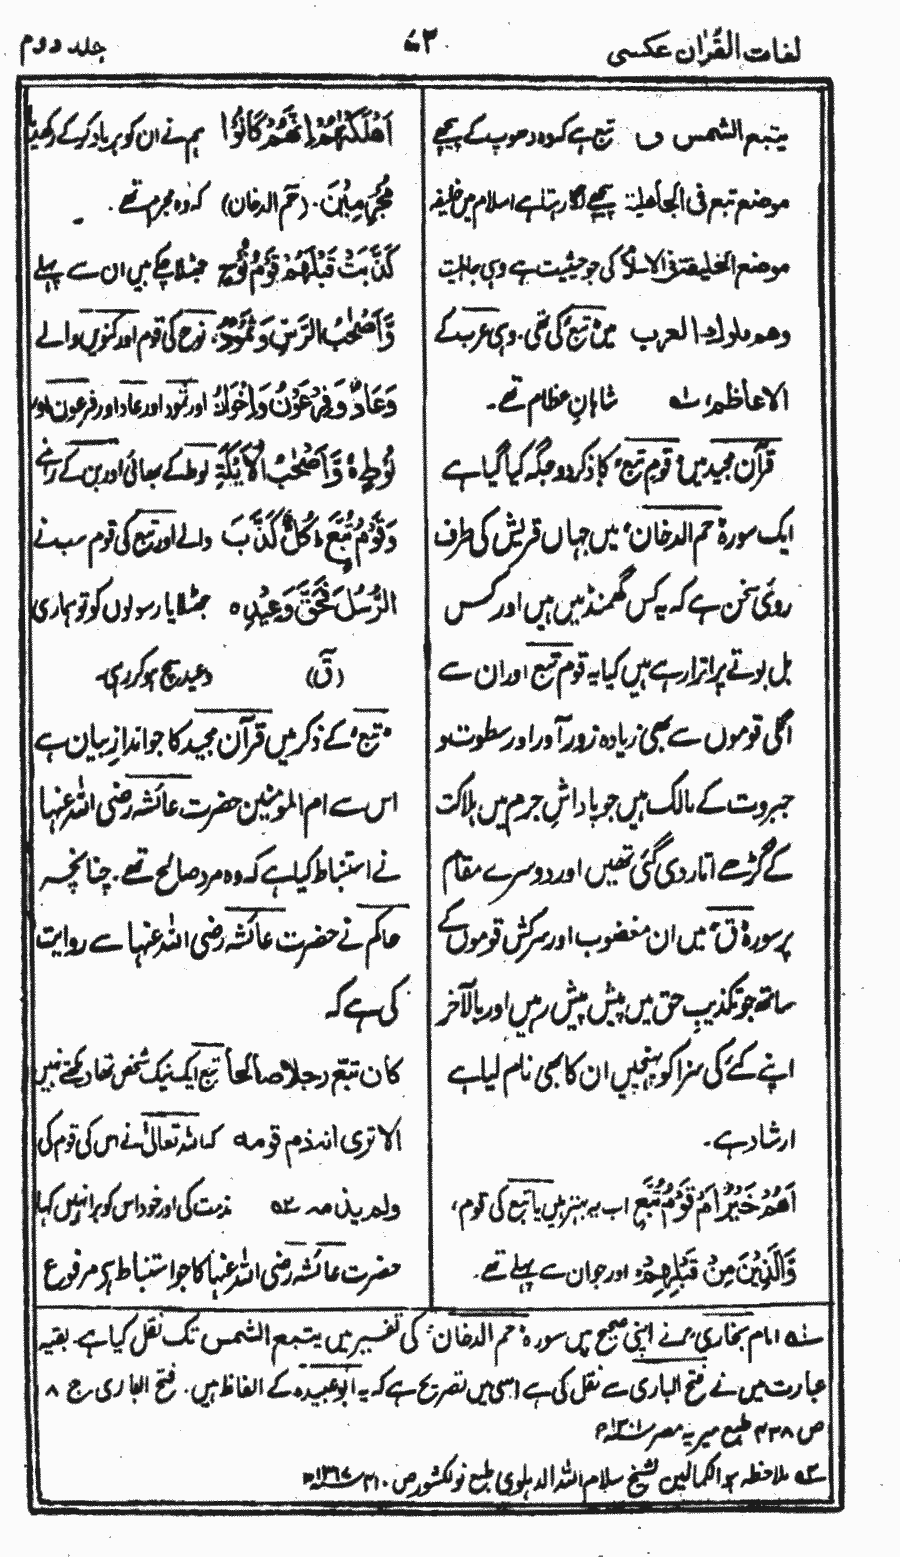 لغات القُرآن عکسی
۷۲
جلد دوم
یتبع الشمس وں تبع ہے کہ وہ دھوپ کے پیچھے
موضع تبع فی الجاھلیۃ پیچھے لگا رہتا ہے اسلام میں خلیفہ
موضع الخلیفۃ فی الاسلام کی جو حیثیت ہے وہی جاہلیت
وھم ملوك العرب میں تبع کی تھی، وہی عرب کے
الاعاظم، شاہانِ عظام تھے۔
قرآن مجید میں قومِ تبع کا ذکر دو جگہ کیا گیا ہے
ایک سورۂ حم الدخان، میں جہاں قریش کی طرف
روئے سخن ہے کہ یہ کس گھمنڈ میں ہیں اور کس
بل بوتے پر اترا رہے ہیں کیا یہ قوم تبع اور ان سے
اگلی قوموں سے بھی زیادہ زور آور اور سطوت و
جبروت کے مالک ہیں جو پاداشِ جرم میں ہلاکت
کے گڑھے اتار دی گئی تھیں اور دوسرے مقام
پر سورہ ق میں ان مغضوب اور سرکش قوموں کے
ساتھ جو تکذیبِ حق میں پیش پیش رہیں اور بالآخر
اپنے کئے کی سزا کو پہنچیں ان کا بھی نام لیا ہے
ارشاد ہے۔
اَهُمْ خَيْرٌ اَمْ قَوْمُ تُبَّعٍ اب یہ بہتر ہیں یا تبع کی قوم،
وَّالَّذِيْنَ مِنْ قَبْلِهِمْ اور جو ان سے پہلے تھے۔
اَهْلَكْنٰهُمْ اِنَّهُمْ كَانُوْا ہم نے ان کو برباد کر کے رکھدیا
مُجْرِمِيْنَ۔ (حٰم الدخان) کہ وہ مجرم تھے۔
كَذَّبَتْ قَبْلَهُمْ قَوْمُ نُوْحٍ جھٹلا چکے ہیں ان سے پہلے
وَّاَصْحٰبُ الرَّسِّ وَثَمُوْدُ نوح کی قوم اور کنوئیں والے
وَعَادٌ وَّفِرْعَوْنُ وَاِخْوَانُ اور ثمود اور عاد اور فرعون اور
لُوْطٍ وَّاَصْحٰبُ الْاَيْكَةِ لوط کے بھائی اور بن کے رہنے
وَقَوْمُ تُبَّعٍ كُلٌّ كَذَّبَ والے اور تبع کی قوم سب نے
الرُّسُلَ فَحَقَّ وَعِيْدِ ہ جھٹلایا رسولوں کو تو ہماری
(قٓ) وعید سچ ہو کر رہی۔
تبع، کے ذکر میں قرآن مجید کا جو اندازِ بیان ہے
اس سے ام المؤمنین حضرت عائشہ رضی اللہ عنہا
نے استنباط کیا ہے کہ وہ مرد صالح تھے، چنانچہ
حاکم نے حضرت عائشہ رضی اللہ عنہا سے روایت
کی ہے کہ
کان تبّع رجلا صالحًا تبع ایک نیک شخص تھا دیکھتے نہیں
الا تری انہ ذم قومہ کہ اللہ تعالیٰ نے اس کی قوم کی
ولم یذمہ مذمت کی اور خود اس کو برا نہیں کہا
حضرت عائشہ رضی اللہ عنہا کا جو استنباط ہے مرفوع
امام بخاری نے اپنی صحیح میں سورہ حم الدخان، کی تفسیر میں یتبع الشمس تک نقل کیا ہے۔ بقیہ
عبارت میں نے فتح الباری سے نقل کی ہے اسی میں تصریح ہے کہ یہ ابو عبیدہ کے الفاظ ہیں۔ فتح الباری ج ۸
ص ۴۳۸ طبع میریہ مصر ۱۳۰۱ھ
ملاحظہ ہو الکمالین لشیخ سلام اللہ الدہلوی طبع نولکشور ص ۴۱۰ ۱۳۶۷ھ